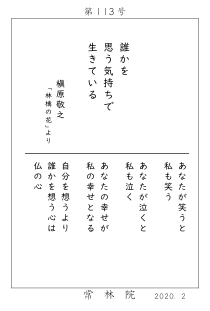 第113号
誰かを
思う気持ちで
生きている
槇原敬之
「林檎の花」より
あなたが笑うと
私も笑う
あなたが泣くと
私も泣く
あなたの幸せが
私の幸せとなる
自分を想うより
誰かを想う心は
仏の心
常林院 2020. 2